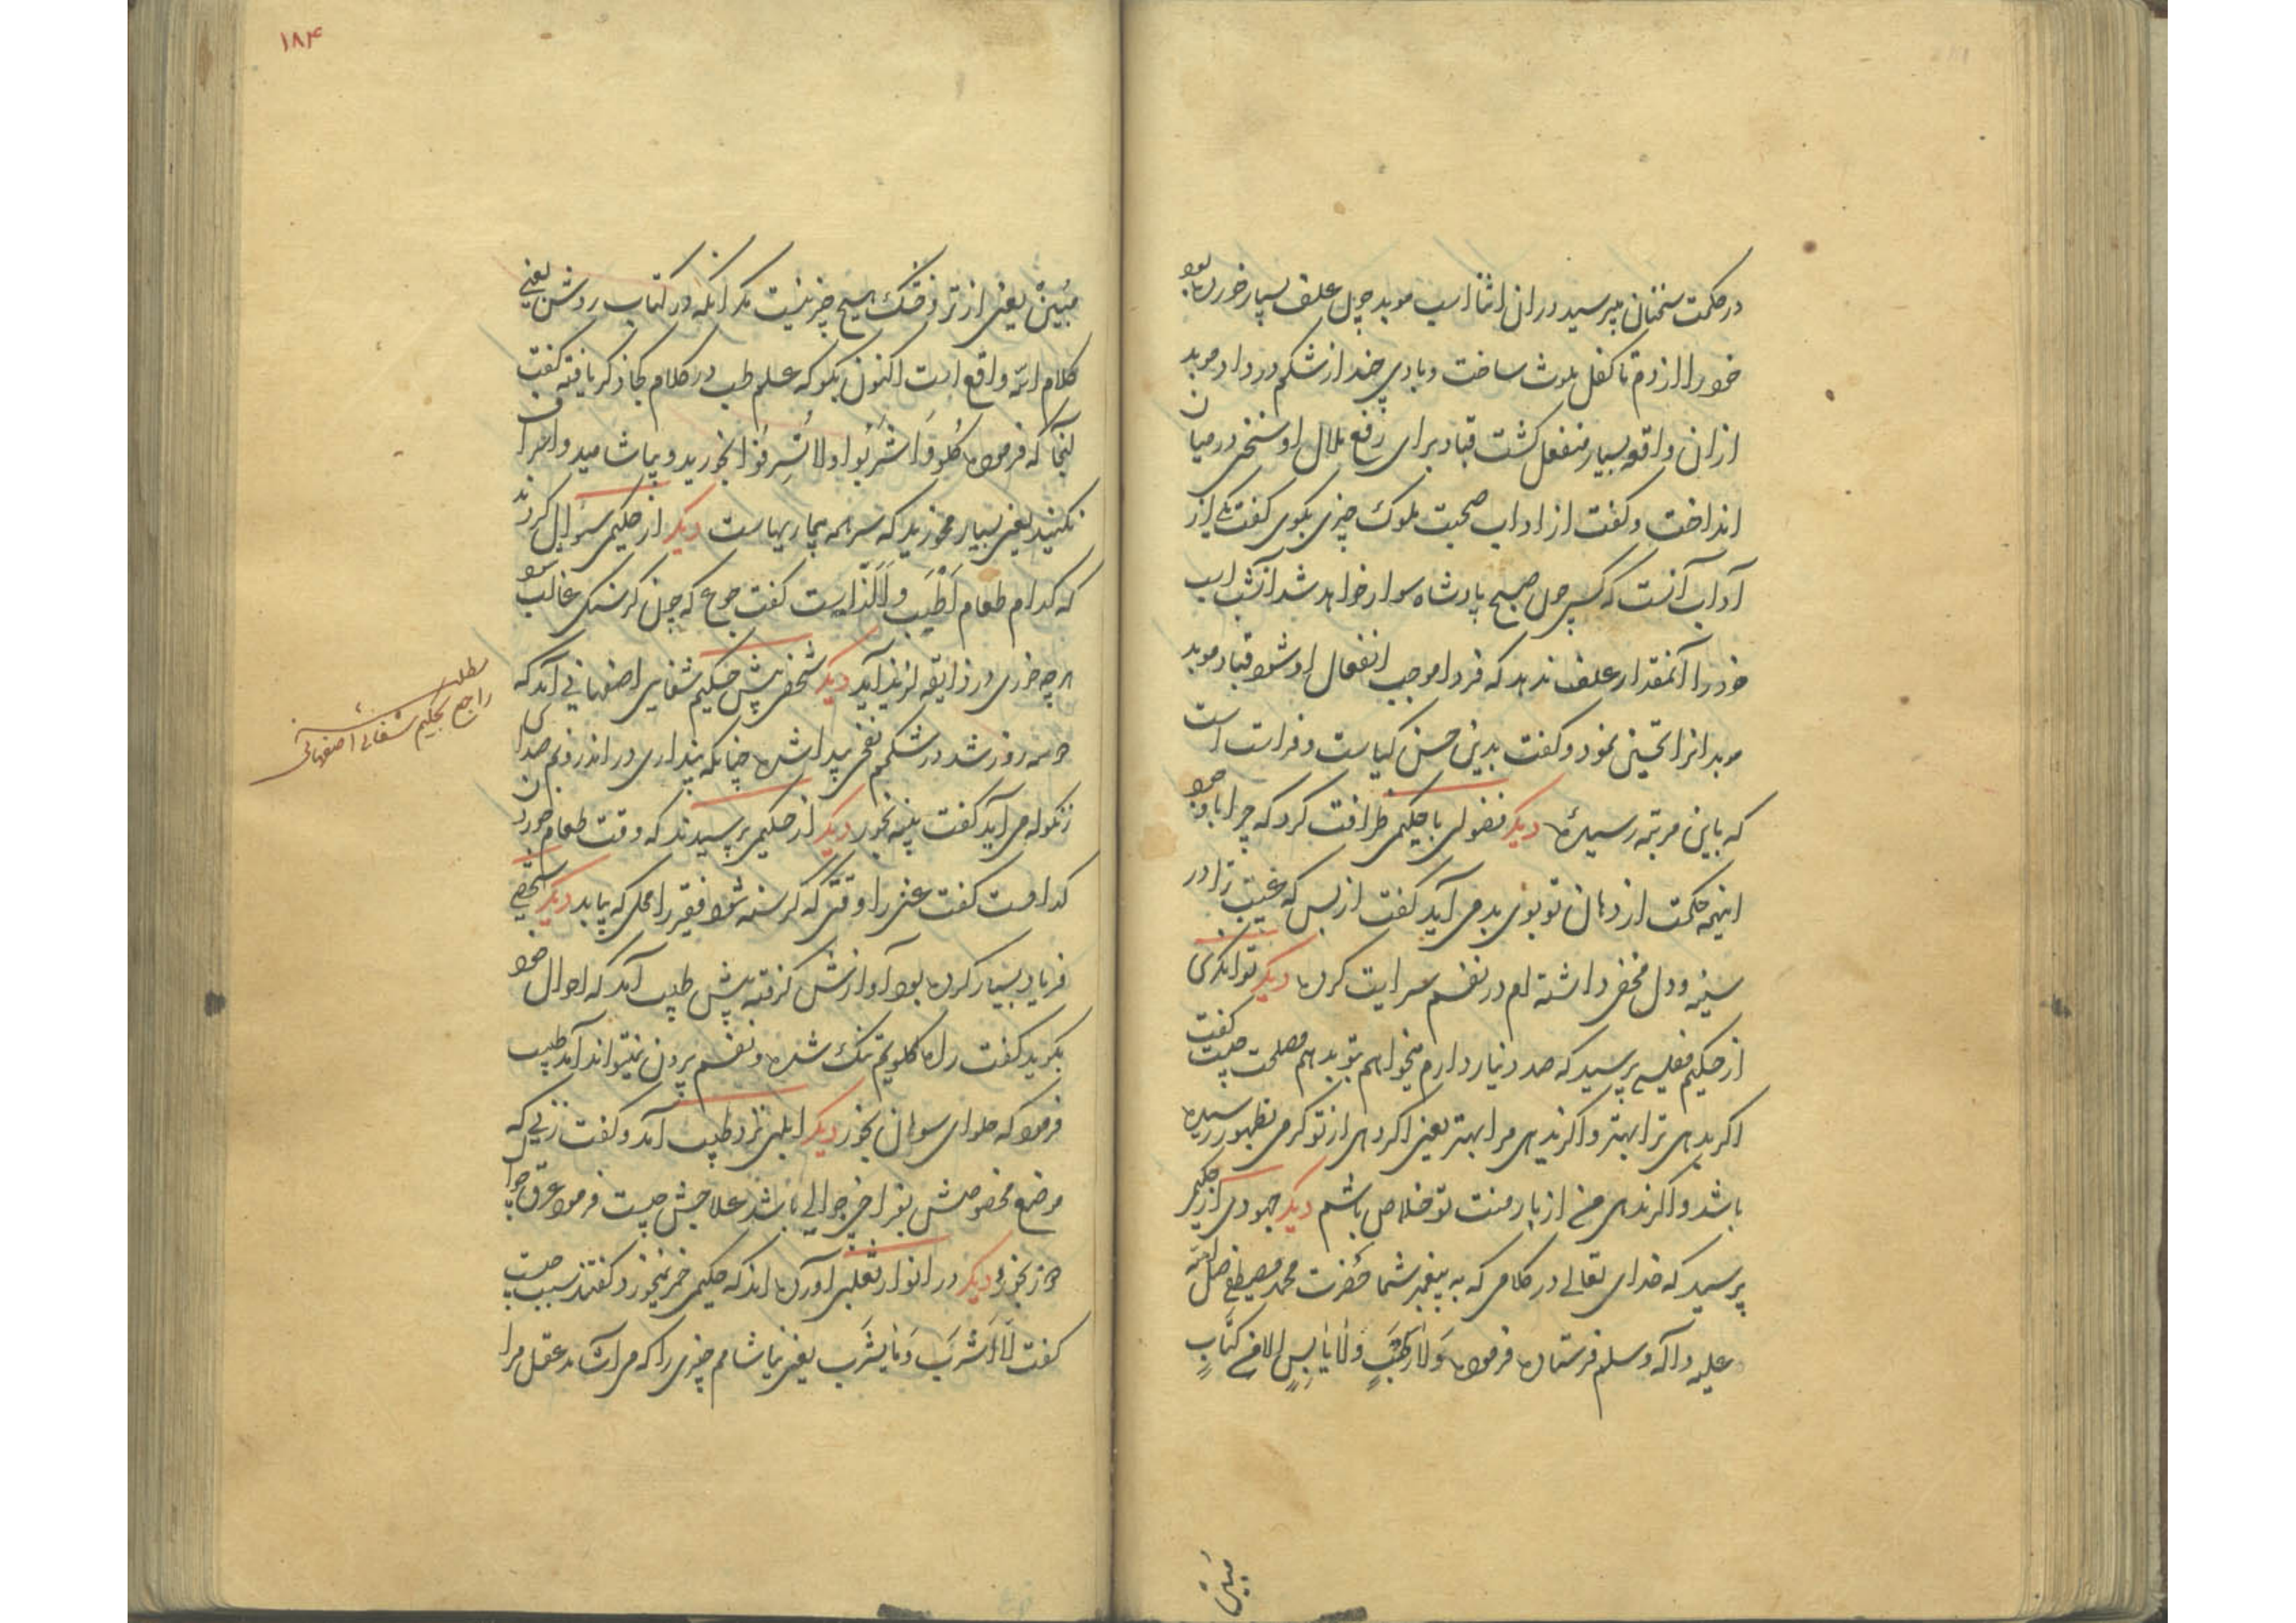 در حکمت سخنان میپرسید در آن اثنا اسپ موبد چون علف بسیار خورده بود
خود را از دم تا کفل ملوث ساخت و بادی چند از شکم در داد موبد
از آن واقعه بسیار منفعل کشت قباد برای رفع ملال او سخنی در میان
انداخت و کفت از آداب صحبت ملوک چیزی بکوی کفت یکی از
آداب آنست که کسی چون صبح با پادشاه سوار خواهد شد از شب اسب
خود را آنمقدار علف ندهد که فردا موجب انفعال او شود قباد موبد
موبدانرا تحسین نمود و کفت بدین حسن کیاست و فراست است
که باین مرتبه رسیدهٔ دیکر فضولی با حکیمی ظرافت کرد که چرا با وجود
اینهمه حکمت از دهان تو بوی بد می آید کفت از بس که غیبت ترا در
سینه و دل مخفی داشته ام در نفسم سرایت کرده دیکر توانکری
از حکیم مفلسی پرسید که صد دینار دارم میخواهم بتو بدهم مصلحت چیست کفت
اکر بدهی ترا بهتر و اکر ندهی مرا بهتر یعنی اکر دهی از تو کرمی بظهور رسیده
باشد و اکر ندهی من از بار منت تو خلاص باشم دیکر جهودی از حکیمی
پرسید که خدای تعالی در کلامی که به پیغمبر شما حضرت محمد مصطفی صلی الله
علیه و آله و سلم فرستاده فرموده وَلا رَطبٍ وَلا یابِسٍ اِلا فی کِتابٍ
مُبین
۱۸۴
مُبینٍ یعنی از تر و خشک هیچ چیز نیست مکر آنکه در کتاب روشن یعنی
کلام الله واقع است اکنون بکو که علم طب در کلام کجا ذکر یافته کفت
آنجا که فرموده کُلوا وَاشرَبُوا ولا تُسرِفُوا بخورید و بیاشامید و اسراف
نکنید یعنی بسیار مخورید که سر همه بیماریهاست دیکر از حکیمی سؤال کردند
که کدام طعام اَطیَب و اَلَذّ است کفت جوع که چون کرسنکی غالب شود
هر چه خوری در ذایقه لذیذ آید دیکر شخصی پیش حکیم شفایی اصفهانی آمد که
دو سه روز شد در شکمم نفخی پیدا شده چنانکه پنداری در اندرونم صدای
زنکوله می آید کفت پنبه بخور دیکر از حکیمی پرسیدند که وقت طعام خوردن
کدامست کفت غنی را وقتی که کرسنه شود فقیر را محلی که بیابد دیکر شخصی
فریاد بسیار کرده بود آوازش کرفته پیش طبیب آمد که احوال خود
بکوید کفت راه کلویم تنک شده و نفسم بیرون نمیتواند آمد طبیب
فرمود که حلوای سوهان بخور دیکر ابلهی نزد طبیب آمد و کفت زنی که
موضع مخصوصش بفراخی جوالی باشد علاجش چیست فرمود عرق جوال
دوز بخورد دیکر در انوار ثعلبی آورده اند که حکیمی خمر نمیخورد کفتند سبب چیست
کفت لا اَشرَب ما یَشرَب یعنی نیاشامم چیزی را که می آشامد عقل مرا
مطلب
راجع بحکیم شفائی اصفهانی